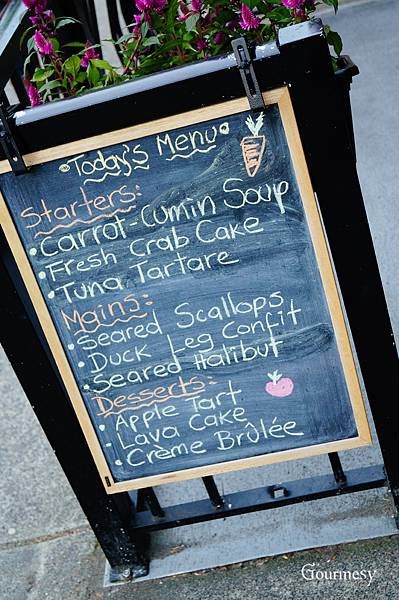 Today's Menu
Starters:
• Carrot-Cumin Soup
• Fresh Crab Cake
• Tuna Tartare
Mains:
• Seared Scallops
• Duck Leg Confit
• Seared Halibut
Desserts:
• Apple Tart
• Lava Cake
• Crème Brûlée
Gourmesy